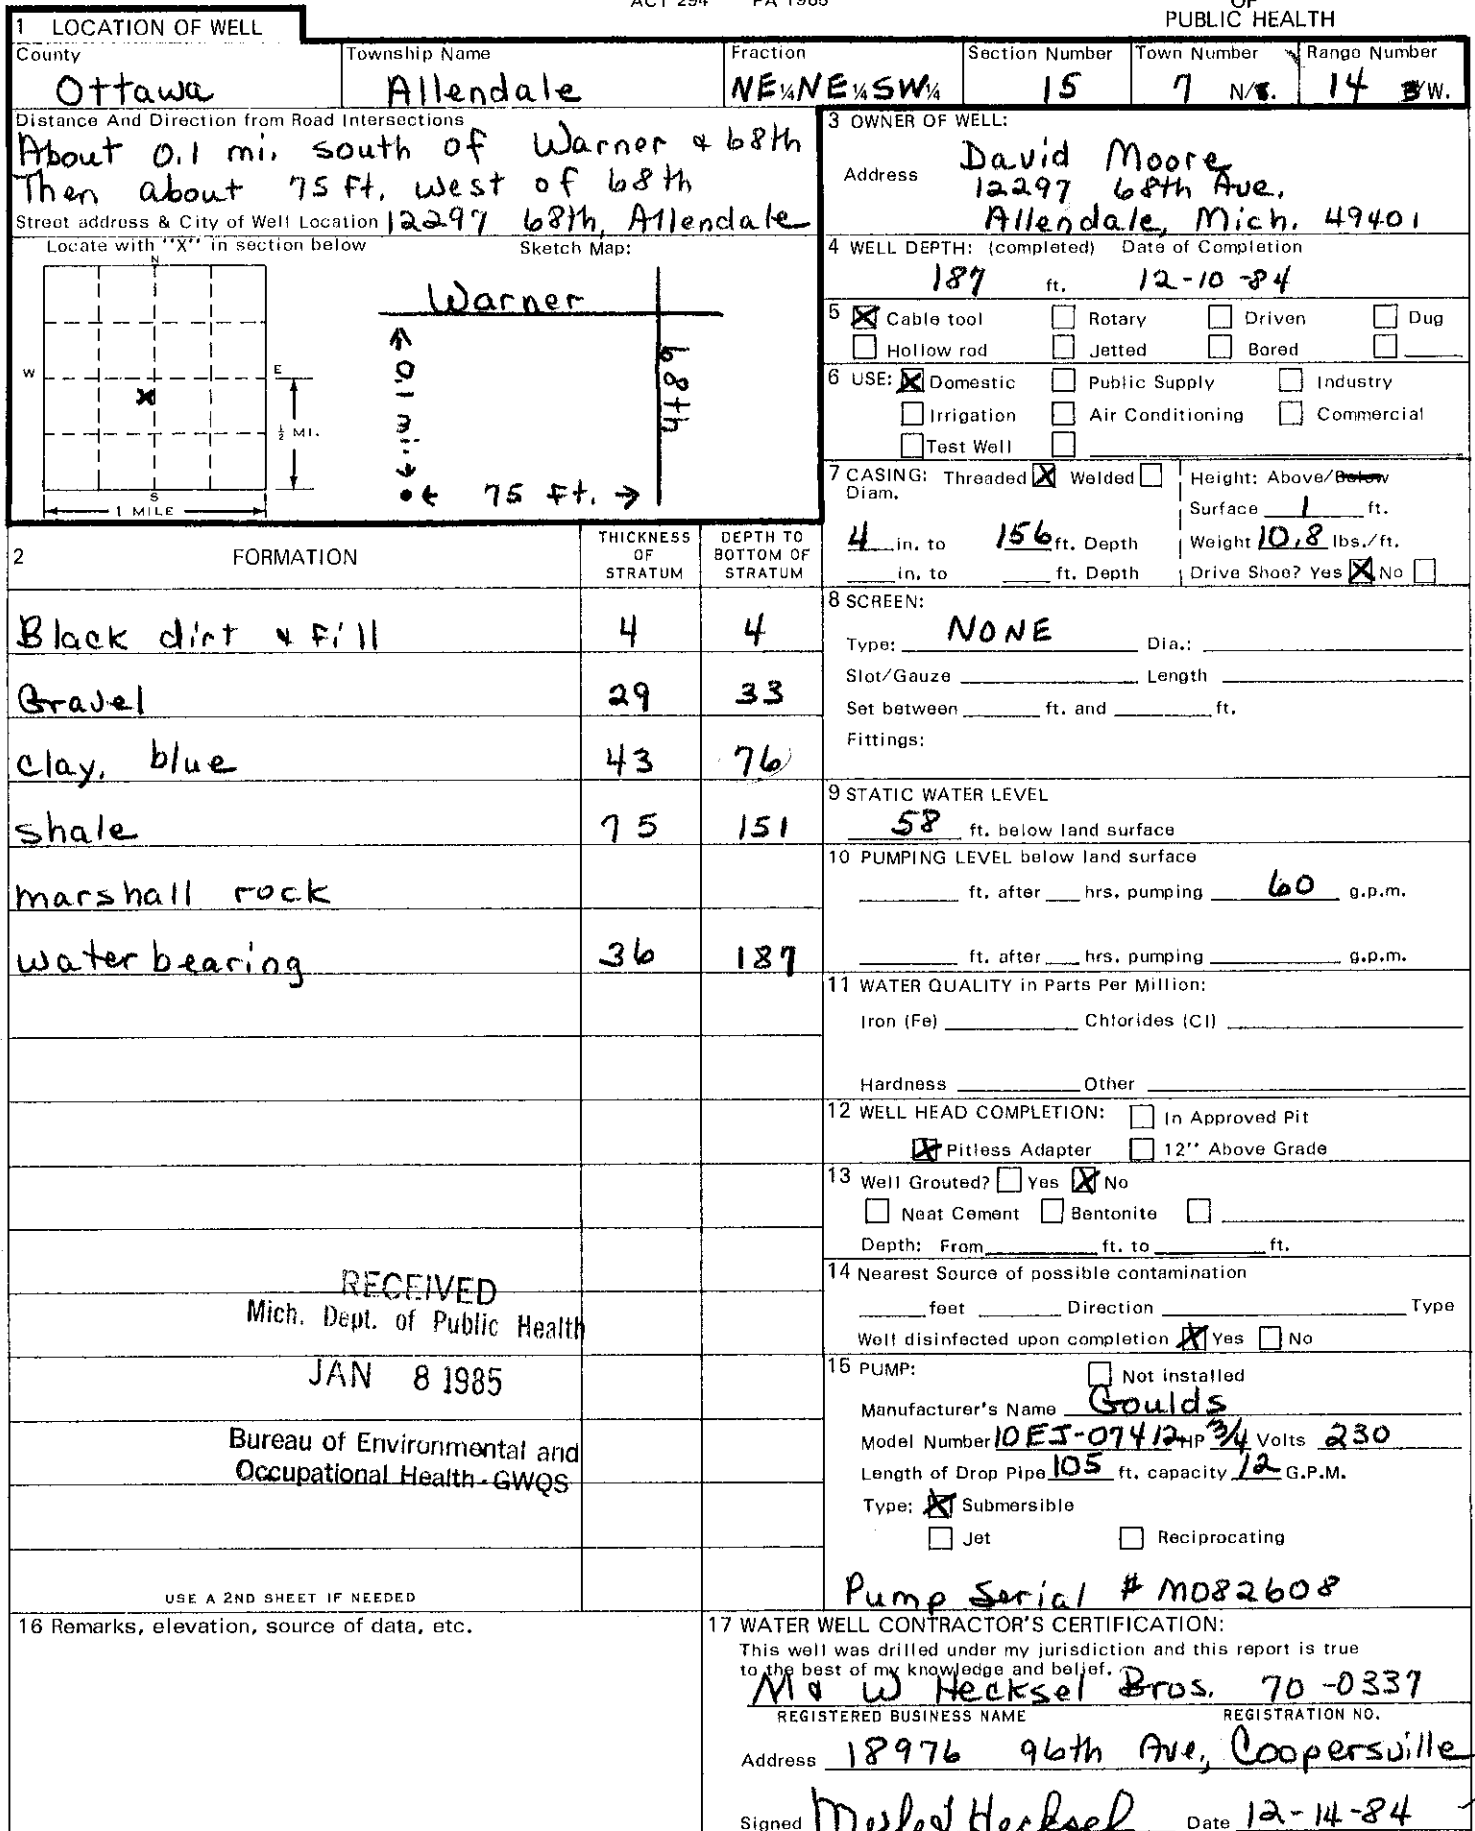 ACT 294 PA 1965
OF
PUBLIC HEALTH
1 LOCATION OF WELL
County
Ottawa
Township Name
Allendale
Fraction
NE¼NE¼SW¼
Section Number
15
Town Number
7 N/S.
Range Number
14 E/W.
Distance And Direction from Road Intersections
About 0.1 mi. south of Warner & 68th
Then about 75 ft. west of 68th
Street address & City of Well Location 12297 68th, Allendale
Locate with "X" in section below
Sketch Map:
N
W
E
S
X
½ MI.
1 MILE
Warner
68th
0.1 mi.
75 Ft.
3 OWNER OF WELL:
David Moore
Address 12297 68th Ave.
Allendale, Mich. 49401
4 WELL DEPTH: (completed) Date of Completion
187 ft. 12-10-84
5 X Cable tool Rotary Driven Dug
Hollow rod Jetted Bored
6 USE: X Domestic Public Supply Industry
Irrigation Air Conditioning Commercial
Test Well
7 CASING: Threaded X Welded
Diam.
4 in. to 156 ft. Depth
in. to ft. Depth
Height: Above/Below
Surface 1 ft.
Weight 10.8 lbs./ft.
Drive Shoe? Yes X No
2 FORMATION
THICKNESS OF STRATUM
DEPTH TO BOTTOM OF STRATUM
Black dirt & Fill 4 4
Gravel 29 33
Clay, blue 43 76
Shale 75 151
marshall rock
water bearing 36 187
8 SCREEN:
Type: NONE Dia.:
Slot/Gauze Length
Set between ft. and ft.
Fittings:
9 STATIC WATER LEVEL
58 ft. below land surface
10 PUMPING LEVEL below land surface
ft. after hrs. pumping 60 g.p.m.
ft. after hrs. pumping g.p.m.
11 WATER QUALITY in Parts Per Million:
Iron (Fe) Chlorides (Cl)
Hardness Other
12 WELL HEAD COMPLETION: In Approved Pit
X Pitless Adapter 12'' Above Grade
13 Well Grouted? Yes X No
Neat Cement Bentonite
Depth: From ft. to ft.
14 Nearest Source of possible contamination
feet Direction Type
Well disinfected upon completion X Yes No
15 PUMP: Not installed
Manufacturer's Name Goulds
Model Number 10EJ-07412 HP 3/4 Volts 230
Length of Drop Pipe 105 ft. capacity 12 G.P.M.
Type: X Submersible
Jet Reciprocating
Pump Serial # M082608
RECEIVED
Mich. Dept. of Public Health
JAN 8 1985
Bureau of Environmental and
Occupational Health-GWQS
USE A 2ND SHEET IF NEEDED
16 Remarks, elevation, source of data, etc.
17 WATER WELL CONTRACTOR'S CERTIFICATION:
This well was drilled under my jurisdiction and this report is true
to the best of my knowledge and belief.
M & W Hecksel Bros. 70-0337
REGISTERED BUSINESS NAME REGISTRATION NO.
Address 18976 96th Ave, Coopersville
Signed Hecksel Date 12-14-84